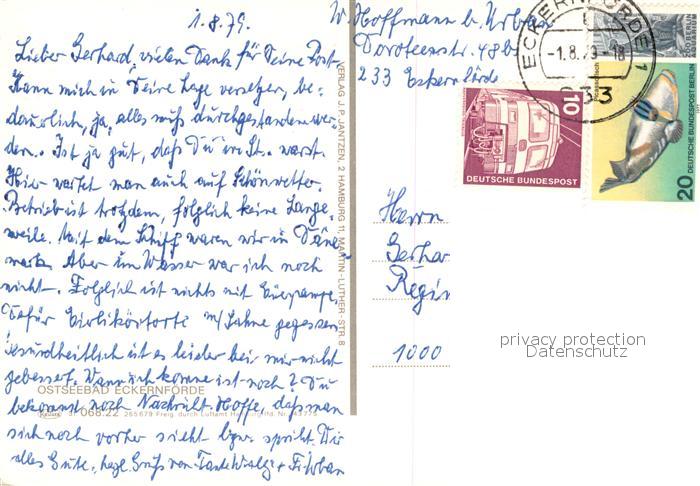 1.8.79.
Lieber Gerhard, vielen Dank für Deine Post.
Kann mich in Deine Lage versetzen, be-
dauerlich, ja, alles muß durchgestanden wer-
den. Ist ja gut, daß Du in St. warst.
Hier wartet man auch auf Schönwetter.
Betrieb ist trotzdem, folglich keine Lange-
weile. Mit dem Schiff waren wir in Däne-
mark. Aber im Wasser war ich noch
nicht. Folglich ist nichts mit
Dafür Eierlikörtorte m/Sahne gegessen
Gesundheitlich ist es leider bei mir nicht
gebessert. Wann ich komme ist noch? Du
bekommst noch Nachricht. Hoffe, daß man
sich noch vorher sieht bzw. spricht. Dir
alles Gute, hzgl. Gruß von Tante
W. Hoffmann b. Urban
Doroteenstr. 48b
233 Eckernförde
VERLAG J. P. JANTZEN, 2 HAMBURG 11, MARTIN-LUTHER-STR. 8
OSTSEEBAD ECKERNFÖRDE
068.22 265679 Freig. durch Luftamt Hamburg
ECKERNFÖRDE 1
-1.8.79-18
233
10
DEUTSCHE BUNDESPOST
20 DEUTSCHE BUNDESPOST BERLIN
Herrn
Gerhar
Regin
1000
privacy protection
Datenschutz